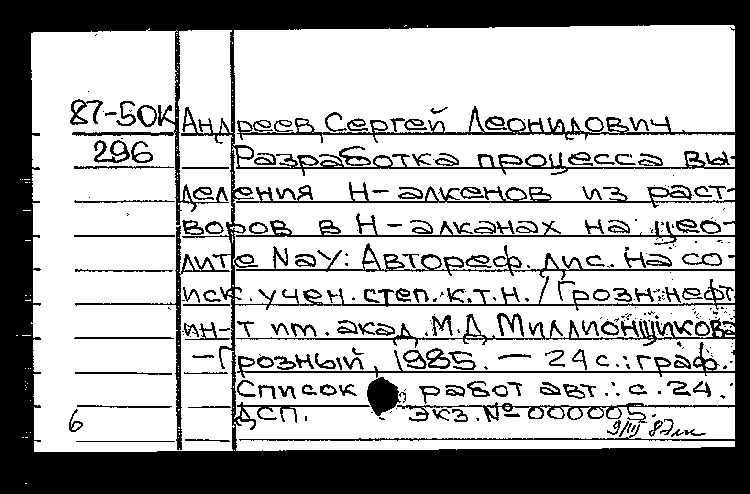 87-50К Андреев, Сергей Леонидович
296 Разработка процесса вы-
деления Н-алкенов из раст-
воров в Н-алканах на цео-
лите NaY: Автореф. дис. на со-
иск. учен. степ. к.т.н. / Грозн. нефт.
ин-т им. акад. М.Д. Миллионщикова
-Грозный, 1985. - 24 с.: граф.
Список работ авт.: с. 24.
ДСП. экз. № 000005.
6 9/III 87